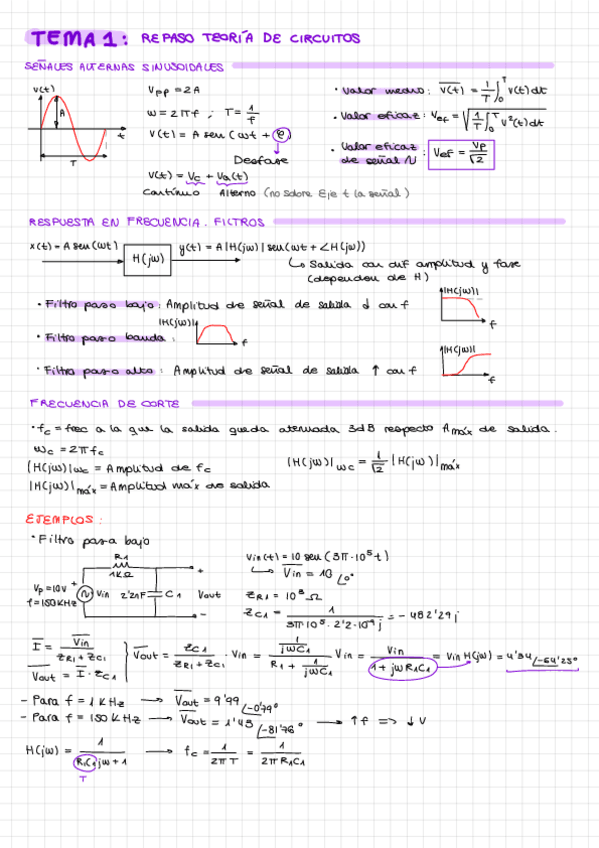 TEMA 1: REPASO TEORÍA DE CIRCUITOS
SEÑALES ALTERNAS SINUSOIDALES
V(t)
A
t
T
Vpp = 2A
ω = 2πf ; T = 1/f
V(t) = A seu (ωt + φ)
Desfase
V(t) = Vc + Va(t)
Contínuo Alterno (no sobre Eje t la señal)
· Valor medio: V(t) = 1/T ∫₀ᵀ v(t)dt
· Valor eficaz: Vef = √(1/T ∫₀ᵀ v²(t)dt)
· Valor eficaz de señal ∿ : Vef = Vp/√2
RESPUESTA EN FRECUENCIA. FILTROS
x(t) = A seu(ωt)
H(jω)
y(t) = A|H(jω)| seu(ωt + ∠H(jω))
↳ Salida con dif amplitud y fase
(dependen de H)
· Filtro paso bajo: Amplitud de señal de salida ↓ con f
|H(jω)|
f
· Filtro paso banda:
|H(jω)|
f
· Filtro paso alto: Amplitud de señal de salida ↑ con f
|H(jω)|
f
FRECUENCIA DE CORTE
· fc = frec a la que la salida queda atenuada 3dB respecto Amáx de salida.
ωc = 2πfc
|H(jω)|ωc = Amplitud de fc
|H(jω)|ωc = 1/√2 |H(jω)|máx
|H(jω)|máx = Amplitud máx de salida
EJEMPLOS:
· Filtro para bajo
R1
1KΩ
Vp = 10V
f = 150KHz
+
Vin
2'2nF
C1
+
Vout
-
Vin(t) = 10 seu (3π·10⁵t)
↳ Vin = 10 ∠0°
ZR1 = 10³ Ω
ZC1 = 1/(3π·10⁵·2'2·10⁻⁹j) = -482'29j
I = Vin/(ZR1+ZC1)
Vout = I·ZC1
Vout = ZC1/(ZR1+ZC1) · Vin = (1/jωC1)/(R1 + 1/jωC1) Vin = Vin/(1+jωR1C1) = Vin H(jω) = 4'34 ∠-64'25°
- Para f = 1KHz → Vout = 9'99 ∠-0'79°
- Para f = 150KHz → Vout = 1'43 ∠-81'76° → ↑f => ↓V
H(jω) = 1/(R1C1jω + 1) → fc = 1/2πT = 1/2πR1C1
T